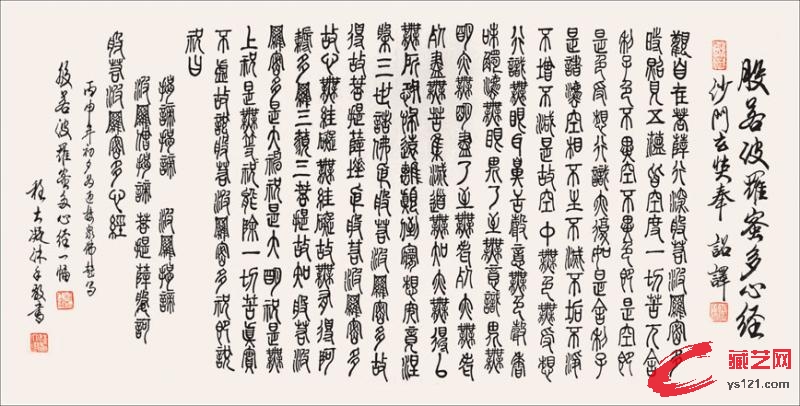 般若波羅蜜多心经
沙門玄奘奉 詔譯
觀自在菩薩行深般若波羅蜜多
時照見五蘊皆空度一切苦厄舍
利子色不異空空不異色色即是空空即
是色受想行識亦復如是舍利子
是諸法空相不生不滅不垢不淨
不增不減是故空中無色無受想
行識無眼耳鼻舌身意無色聲香
味觸法無眼界乃至無意識界無無
明亦無無明盡乃至無老死亦無老
死盡無苦集滅道無知亦無得以
無所恐怖遠離顛倒夢想究竟涅
槃三世諸佛依般若波羅蜜多故
得故菩提薩埵依般若波羅蜜多
故心無罣礙無罣礙故無有得阿
耨多羅三藐三菩提故知般若波
羅蜜多是大神祝是大明祝是無
上祝是無等等祝能除一切苦真實
不虛故說般若波羅蜜多祝即說
祝曰
揭諦揭諦 波羅揭諦
波羅僧揭諦 菩提薩婆訶
般若波羅蜜多心經
丙申年初夕
般若波羅蜜多心經一幅
沐手敬書
藏艺网
ys121.com